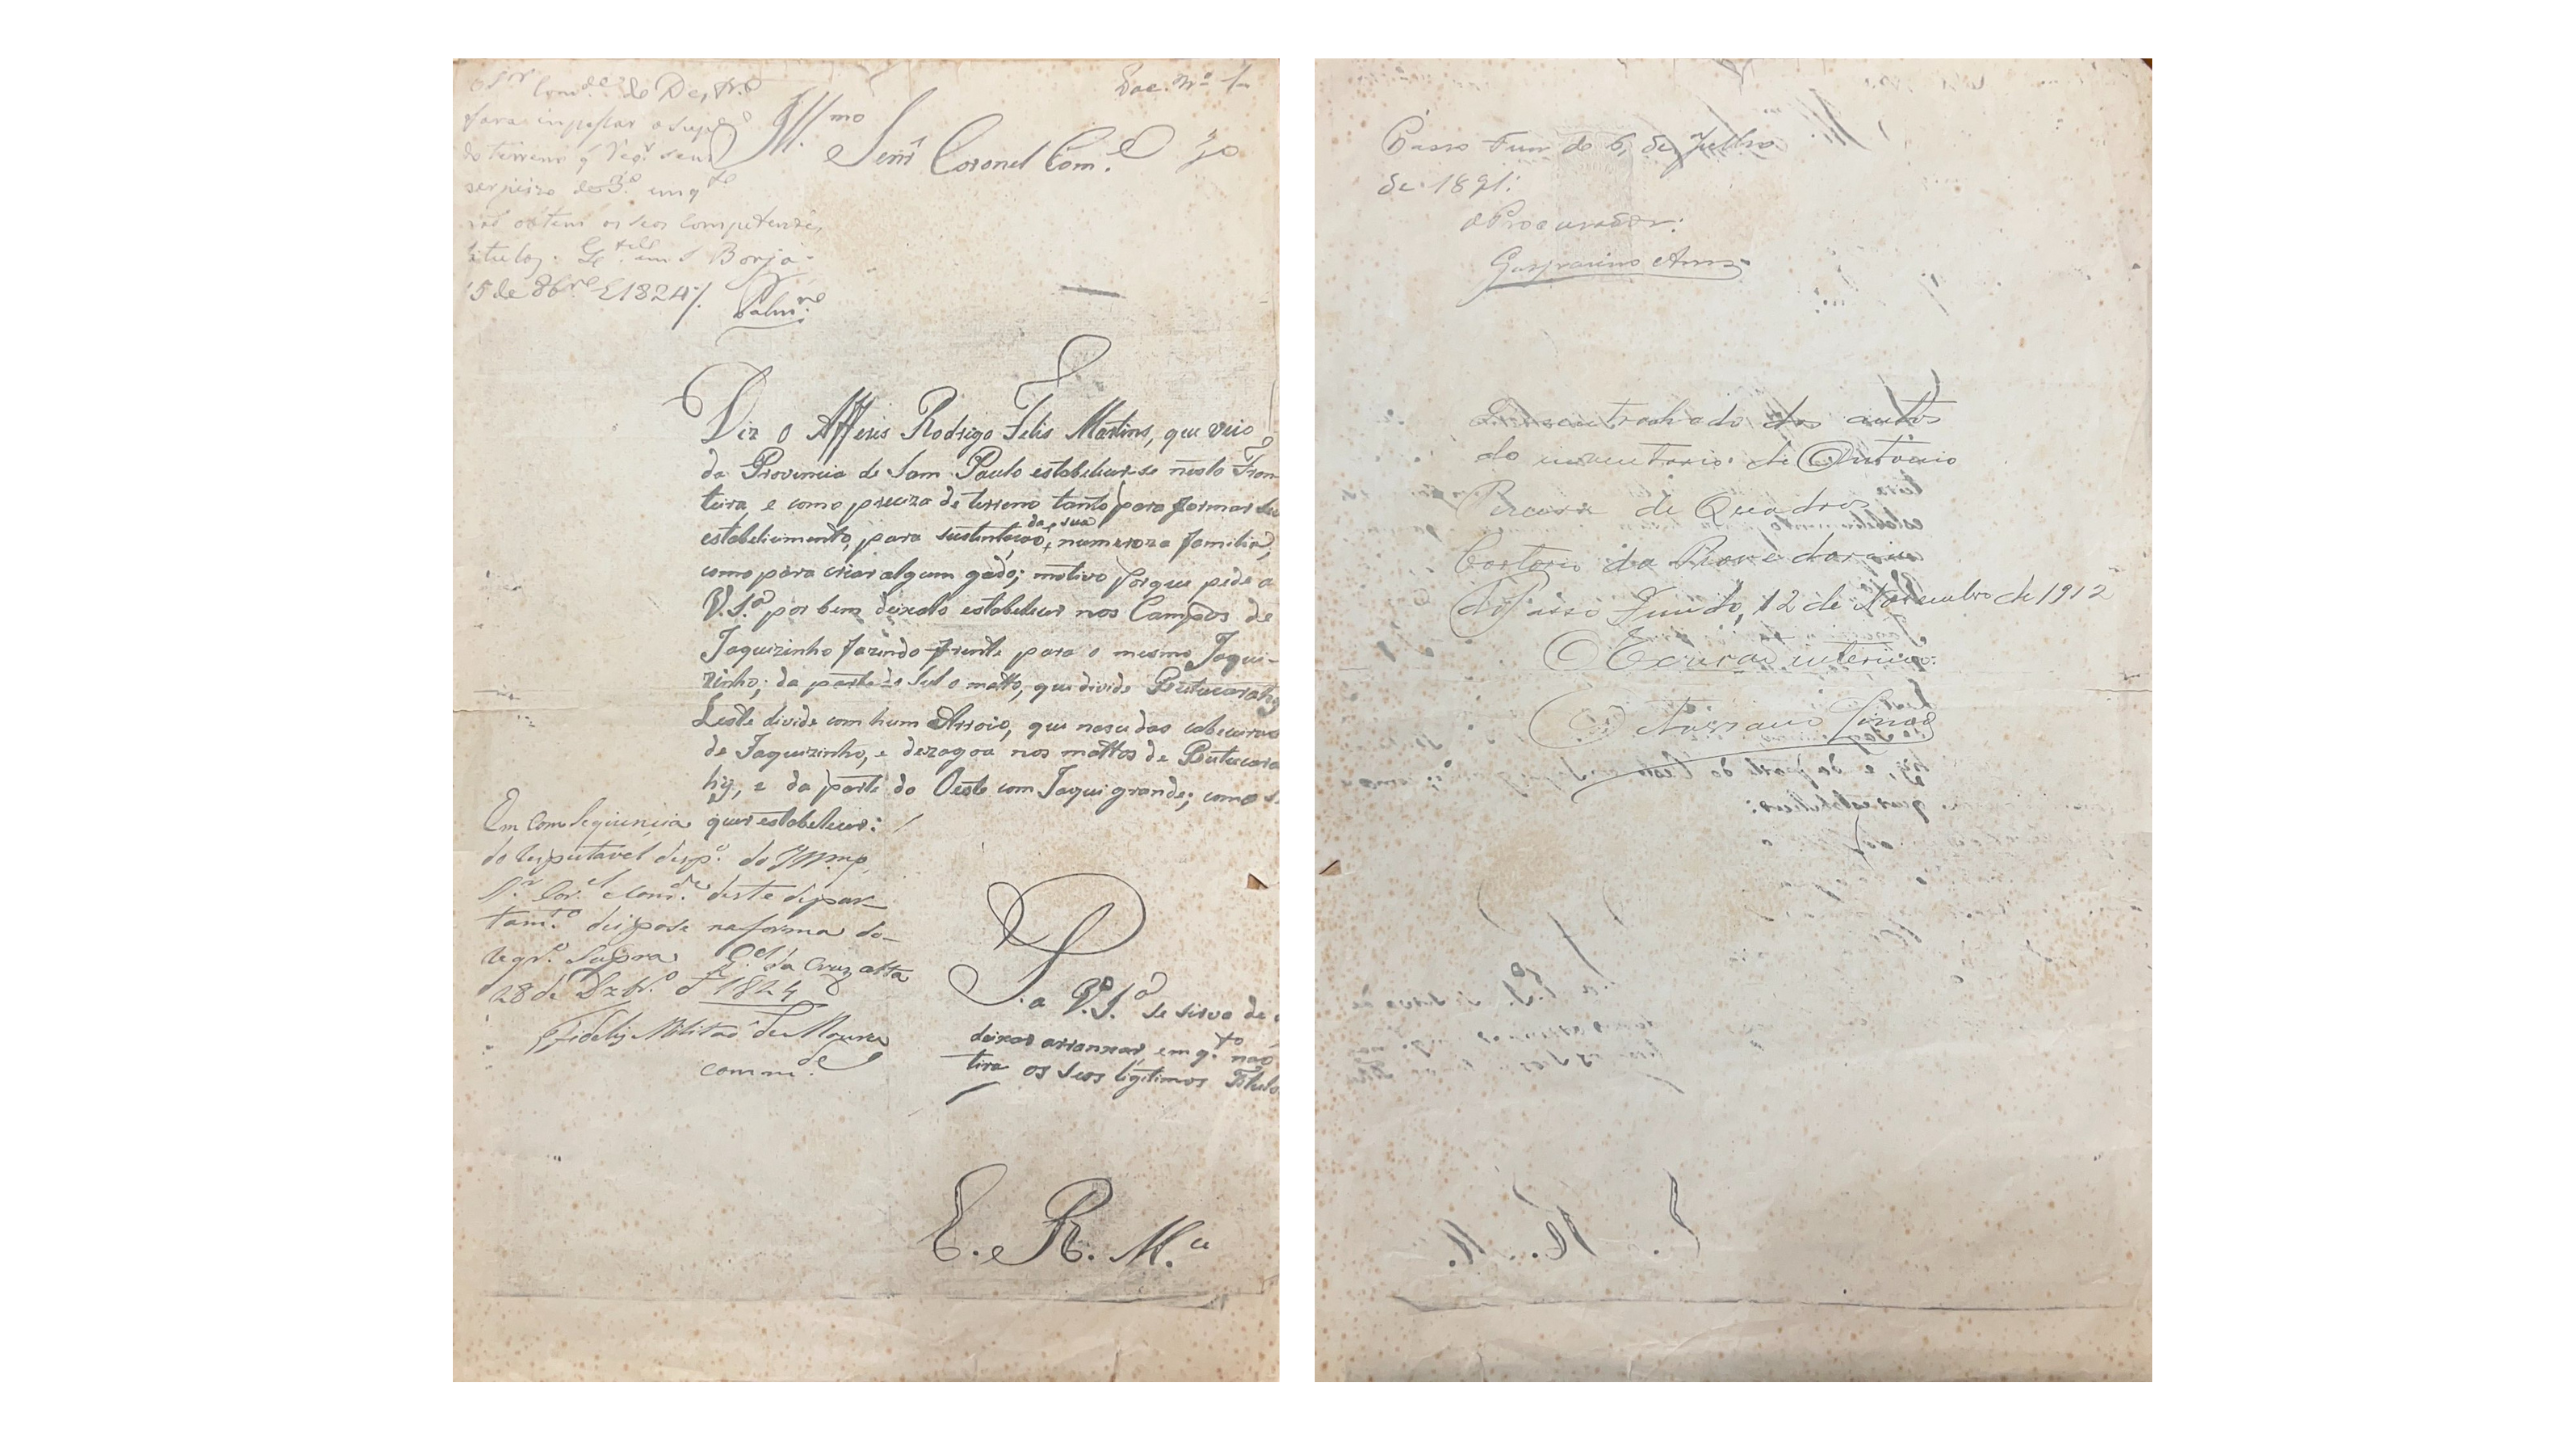 Doc. Nº 1
O Sr Comde do Destro
fara inspessar o
do terreno q Reqr
em qto
não obtem os seos competentes
titulos. em S Borja
15 de 8bro 1824
Palmro
Illmo Senr Coronel Com.e
Diz o Afferes Rodrigo Felis Martins, que veio
da Provincia de Sam Paulo estabelecer-se nesta Fron
teira, e como preciza de terreno tanto para formar seu
estabelicimento, para sustentação da sua numeroza familia,
como para criar algum gado; motivo porque pede a
V.S.a por bem deixalo estabelecer nos Campos de
Jaquizinho fazendo frente para o mesmo Jaqui-
zinho; da parte do Sul o matto, que divide Butucarahy
Leste divide com hum Arroio, que nasce das cabeceiras
de Jaquizinho, e dezagoa nos mattos de Butucara
hy, e da parte do Oeste com Jaqui grande; como
quer estabelecer:
Em Comsequencia
do respeitavel desp.o do Illmo
Sr. Cor.el Com.de deste depar-
tam.to despose na forma do
reqr.o Supra Q.el da Cruz alta
28 de Dzbr.o d 1824
Fidelis Militaõ de Moura
comm.de
P. a V.S.a se sirva de
deixar arranxar, em q.to não
tira os seos ligitimos Titulos
E. R. M.ce
Passo Fundo 6, de Julho
de 1891.
O Procurador:
Desentranhado dos autos
do inventario de Antonio
Pereira de Quadros
Cartorio da Provedoria
do Passo Fundo, 12 de Novembro de 1912
O Escrivão interino: